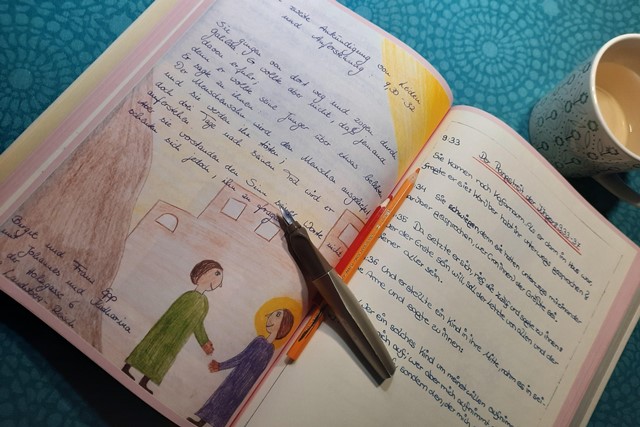 zweite Ankündigung von Leiden
und Auferstehung 9,30-32
Sie gingen von dort weg und zogen durch
Galiläa. Er wollte aber nicht, daß jemand
davon erfuhr;
denn er wollte seine Jünger über etwas belehren.
Er sagte zu ihnen:
Der Menschensohn wird den Menschen ausgeliefert
und sie werden ihn töten;
doch drei Tage nach seinem Tod wird er
auferstehen.
Aber sie verstanden den Sinn seiner Worte nicht
scheuten sich jedoch, ihn zu fragen.
Birgit und Frank
mit Johannes und Katharina
9:33
Der Rangstreit der Jünger 9,33-37
Sie kamen nach Kafarnaum. Als er dann im Haus war,
fragte er sie: Worüber habt ihr unterwegs gesprochen?
34 Sie schwiegen, denn sie hatten unterwegs miteinander
darüber gesprochen, wer (von ihnen) der Größte sei.
35 Da setzte er sich, rief die Zwölf und sagte zu ihnen:
Wer der Erste sein will, soll der Letzte von allen und der
Diener aller sein.
36 Und er stellte ein Kind in ihre Mitte, nahm es in sei-
ne Arme und sagte zu ihnen:
Wer ein solches Kind um meinetwillen aufnimmt,
auf; wer aber mich aufnimmt,
sondern den, der mich